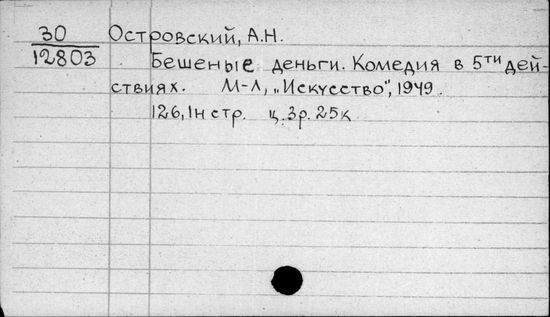 30
12803
Островский, А.Н.
Бешеные деньги. Комедия в 5ти дей-
ствиях. М-Л, „Искусство", 1949.
126, 1н стр. ц. 3р. 25к